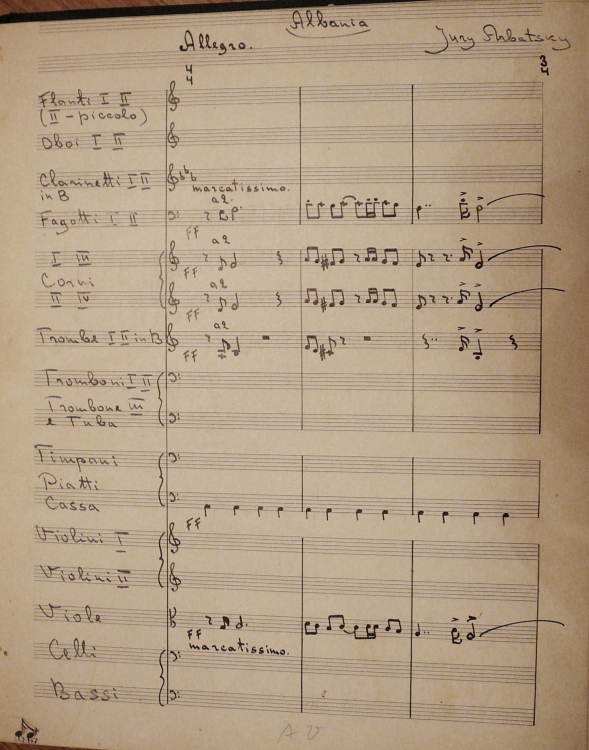 Albania
Allegro.
Jury Arbatsky
4
4
3
4
Flauti I II
(II - piccolo)
Oboi I II
Clarinetti I II
in B
marcatissimo.
a2.
Fagotti I II
FF
a2
I III
FF
Corni
a2
II IV
FF
a2
Trombe I II in B
FF
Tromboni I II
Trombone III
e Tuba
Timpani
Piatti
Cassa
FF
Violini I
Violini II
Viole
FF
marcatissimo.
Celli
Bassi